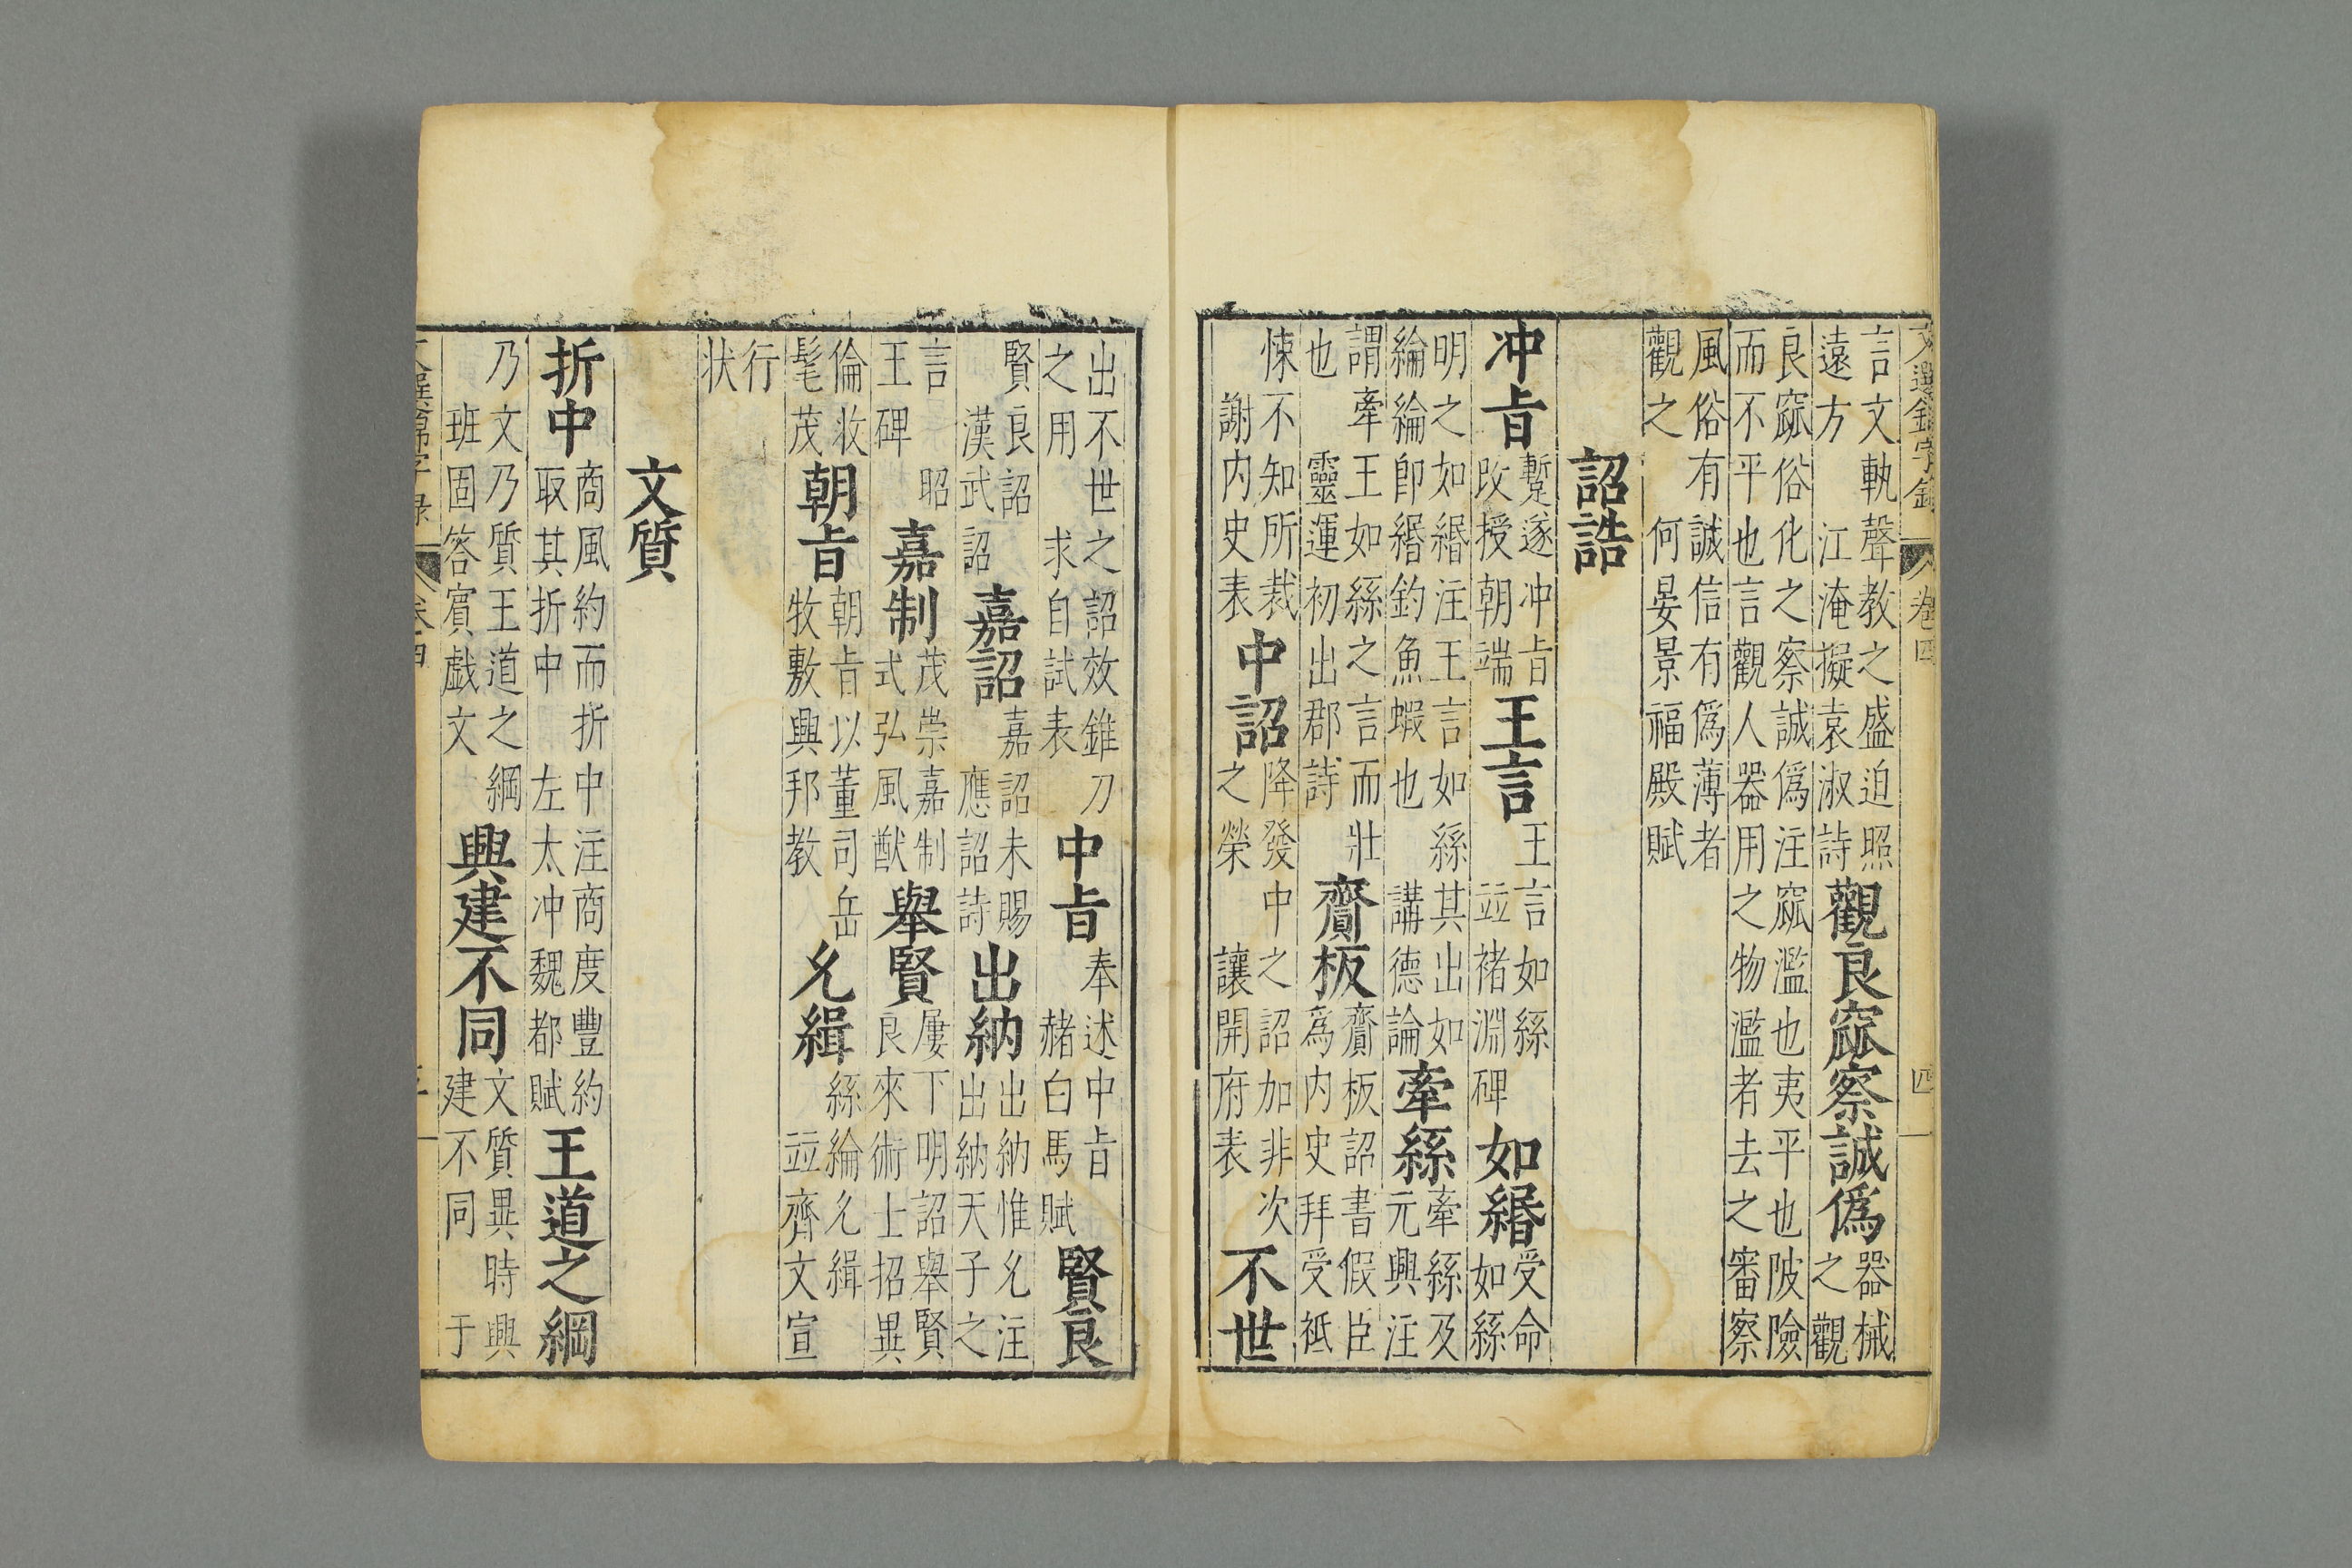 文選錦字錄 卷四 四
言文軌聲教之盛迫照
遠方 江淹擬袁淑詩
觀良窳察誠僞
器械
之觀
良窳俗化之察誠僞注窳濫也夷平也陂險
而不平也言觀人器用之物濫者去之審察
風俗有誠信有僞薄者
觀之 何晏景福殿賦
詔誥
冲旨
蹔遂冲旨
改授朝端
王言
王言如絲
竝褚淵碑
如緡
受命
如絲
明之如緡注王言如絲其出如
綸綸卽緡釣魚蝦也 講德論
牽絲
牽絲及
元興注
謂牽王如絲之言而壯
也 靈運初出郡詩
齎板
齎板詔書假臣
爲内史拜受祗
悚不知所裁
謝内史表
中詔
降發中之詔加非次
之榮 讓開府表
不世
出不世之詔效錐刀
之用 求自試表
中旨
奉述中旨
赭白馬賦
賢良
賢良詔
漢武詔
嘉詔
嘉詔未賜
應詔詩
出納
出納惟允注
出納天子之
言 昭
王碑
嘉制
茂崇嘉制
式弘風猷
舉賢
屢下明詔舉賢
良來術士招異
倫收
髦茂
朝旨
朝旨以董司岳
牧敷興邦教
允緝
絲綸允緝
竝齊文宣
行
状
文質
折中
商風約而折中注商度豐約
取其折中 左太冲魏都賦
王道之綱
乃文乃質王道之綱
班固答賓戯文
興建不同
文質異時興
建不同 于